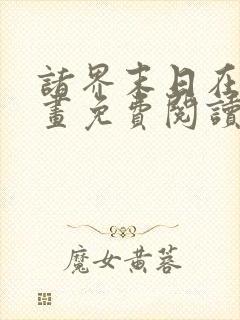 諸界末日在
畫免費閱讀
魔女黃蓉